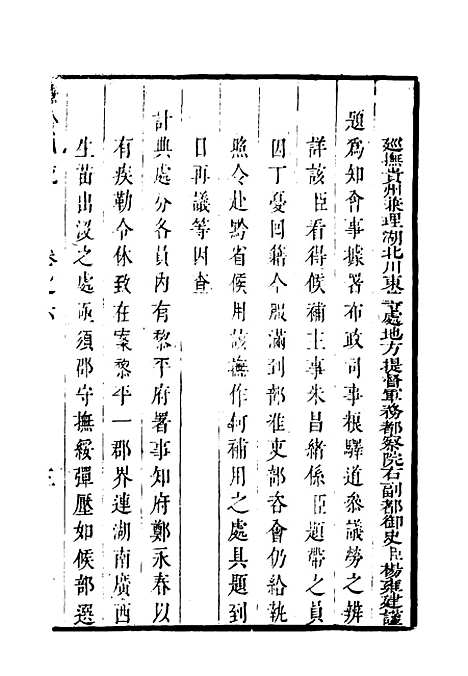 巡撫貴州兼理湖北川東等處地方提督軍務都察院右副都御史臣楊雍建謹
題爲知會事據署布政司事糧驛道參議勞之辨
詳該臣看得候補主事朱昌緒係臣題帶之員
因丁憂回籍今服滿到部准吏部咨會仍給執
照令赴黔省候用該撫作何補用之處具題到
日再議等因查
計典處分各員內有黎平府署事知府鄭永春以
有疾勒令休致在案黎平一郡界連湖南廣西
生苗出沒之處亟須郡守撫綏彈壓如候部選
卷之六